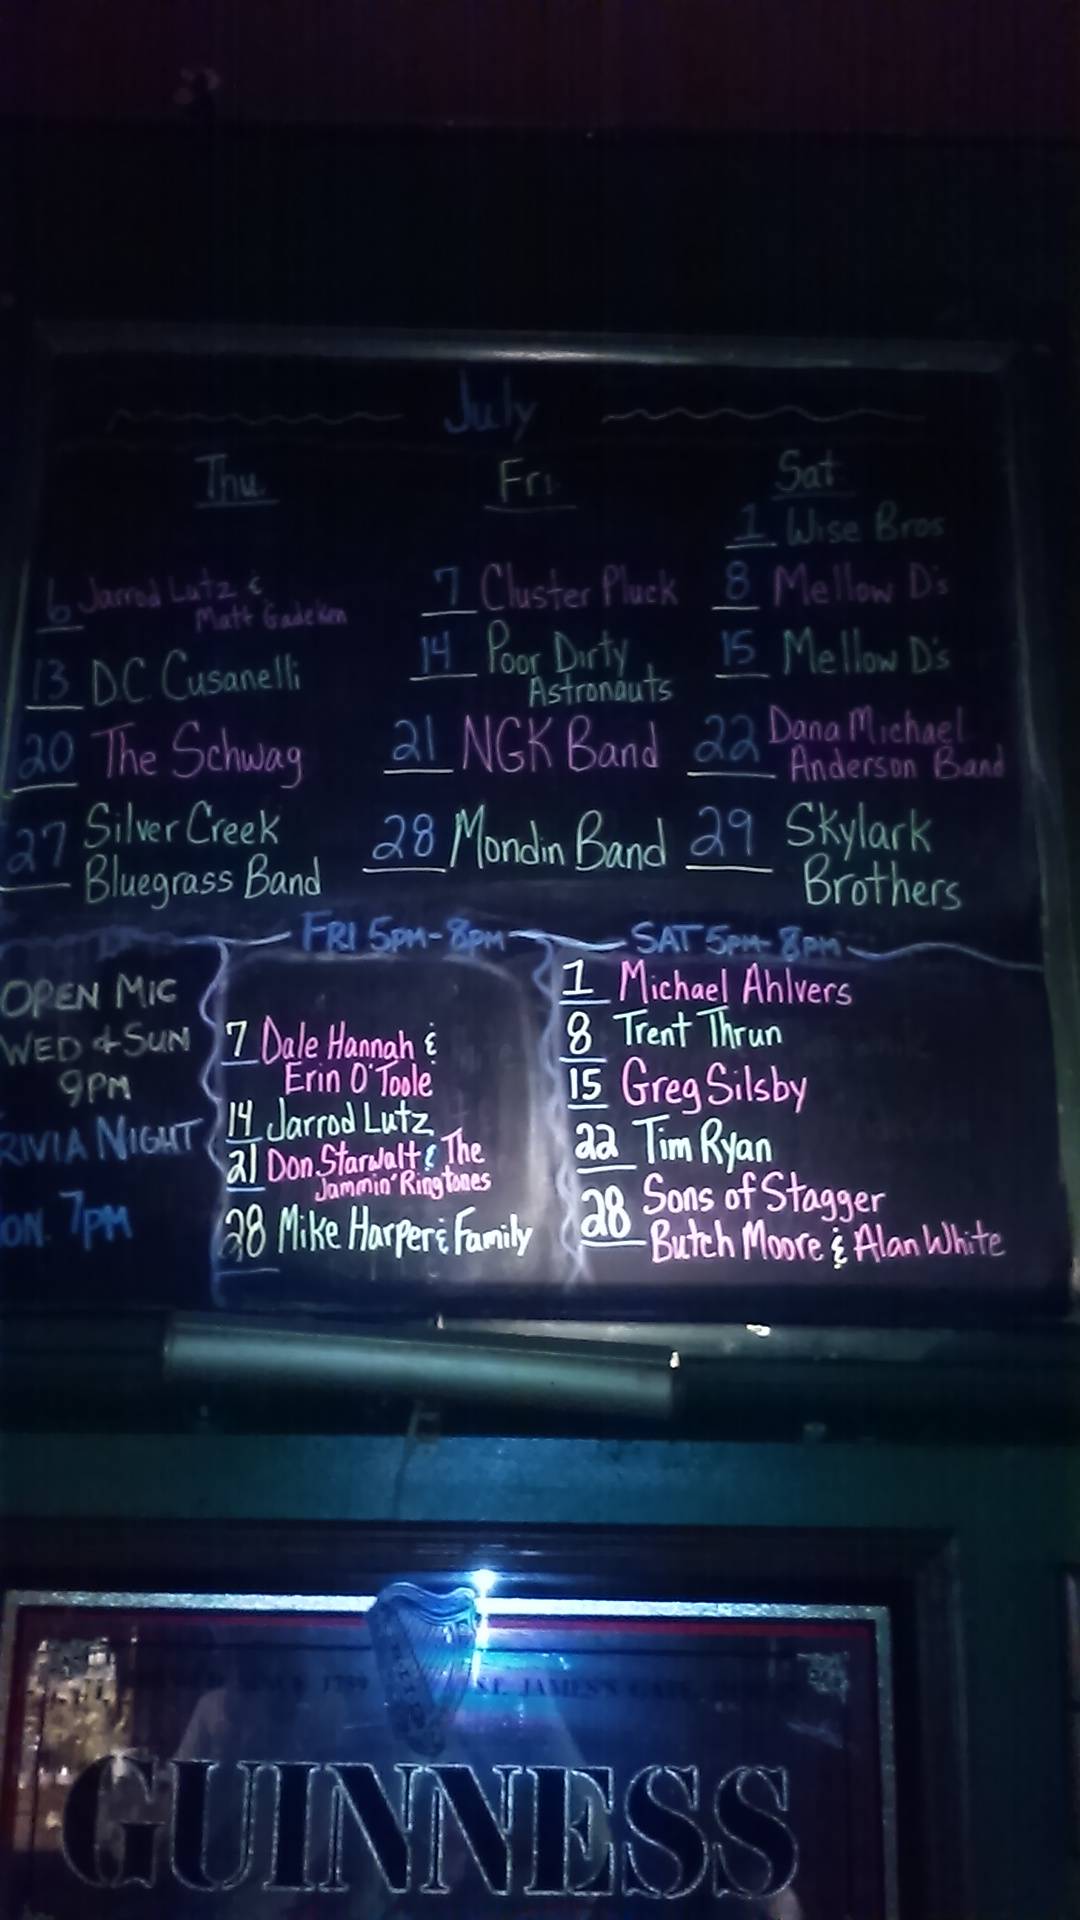 July
Thu. Fri. Sat.
1 Wise Bros
6 Jarrod Lutz &
Matt Gadeken
7 Cluster Pluck
8 Mellow D's
13 D.C. Cusanelli
14 Poor Dirty
Astronauts
15 Mellow D's
20 The Schwag
21 NGK Band
22 Dana Michael
Anderson Band
27 Silver Creek
Bluegrass Band
28 Mondin Band
29 Skylark
Brothers
OPEN MIC
WED & SUN
9PM
RIVIA NIGHT
ON. 7PM
FRI 5PM-8PM
7 Dale Hannah &
Erin O'Toole
14 Jarrod Lutz
21 Don Starwalt & The
Jammin' Ringtones
28 Mike Harper & Family
SAT 5PM-8PM
1 Michael Ahlvers
8 Trent Thrun
15 Greg Silsby
22 Tim Ryan
28 Sons of Stagger
Butch Moore & Alan White
1759 ST. JAMES'S GATE
GUINNESS